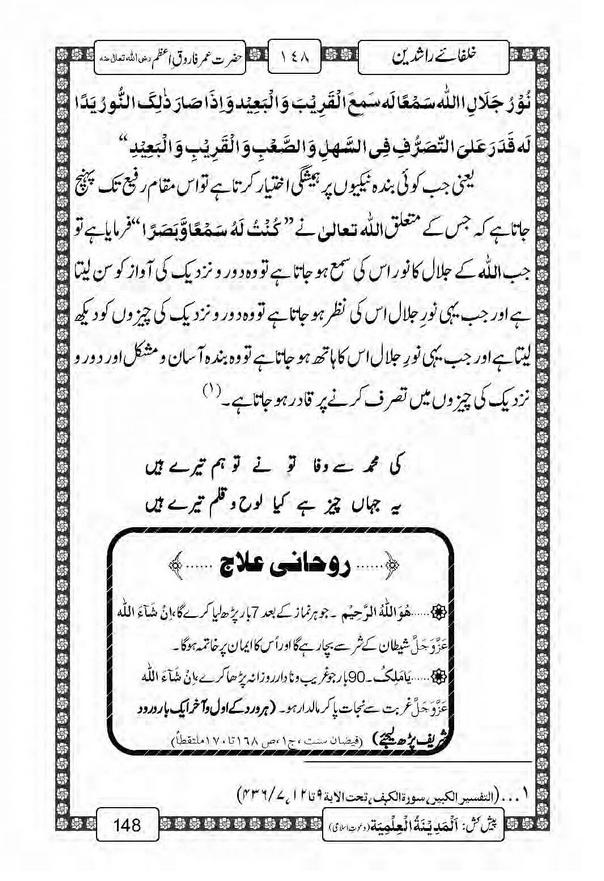 خلفائے راشدین
۱٤۸
حضرت عمر فاروقِ اعظم رضی اللہ تعالٰی عنہ
نُوْرُ جَلَالِ اللهِ سَمْعًا لَه سَمِعَ الْقَرِيْبَ وَالْبَعِيْدَ وَاِذَا صَارَ ذٰلِكَ النُّوْرُ يَدًا
لَه قَدَرَ عَلَى التَّصَرُّفِ فِى السَّهْلِ وَالصَّعْبِ وَالْقَرِيْبِ وَالْبَعِيْدِ“
یعنی جب کوئی بندہ نیکیوں پر ہمیشگی اختیار کرتا ہے تو اس مقام رفیع تک پہنچ
جاتا ہے کہ جس کے متعلق اللہ تعالیٰ نے ”كُنْتُ لَهُ سَمْعًا وَّبَصَرًا“ فرمایا ہے تو
جب اللہ کے جلال کا نور اس کی سمع ہو جاتا ہے تو وہ دور و نزدیک کی آواز کو سن لیتا
ہے اور جب یہی نورِ جلال اس کی نظر ہو جاتا ہے تو وہ دور و نزدیک کی چیزوں کو دیکھ
لیتا ہے اور جب یہی نورِ جلال اس کا ہاتھ ہو جاتا ہے تو وہ بندہ آسان و مشکل اور دور و
نزدیک کی چیزوں میں تصرف کرنے پر قادر ہو جاتا ہے۔(۱)
کی محمد سے وفا تو نے تو ہم تیرے ہیں
یہ جہاں چیز ہے کیا لوح و قلم تیرے ہیں
......روحانی علاج......
......هُوَ اللهُ الرَّحِيْم ۔ جو ہر نماز کے بعد 7 بار پڑھ لیا کرے گا، اِنْ شَآءَ الله
عَزَّوَجَلَّ شیطان کے شر سے بچا رہے گا اور اُس کا ایمان پر خاتمہ ہوگا۔
......يَامَلِكُ۔90 بار جو غریب و نادار روزانہ پڑھا کرے، اِنْ شَآءَ الله
عَزَّوَجَلَّ غربت سے نجات پا کر مالدار ہو۔ (ہر ورد کے اول و آخر ایک بار درود
شریف پڑھ لیجئے) (فیضانِ سنت ، ج۱، ص ۱۶۸ تا ۱۷۰ ملتقطاً)
۱ ... (التفسیر الکبیر، سورة الکہف، تحت الایة ۹ تا ۱۲، ۷/ ۴۳۶)
پیش کش: اَلْمَدِيْنَةُ الْعِلْمِيَة (دعوتِ اسلامی)
148